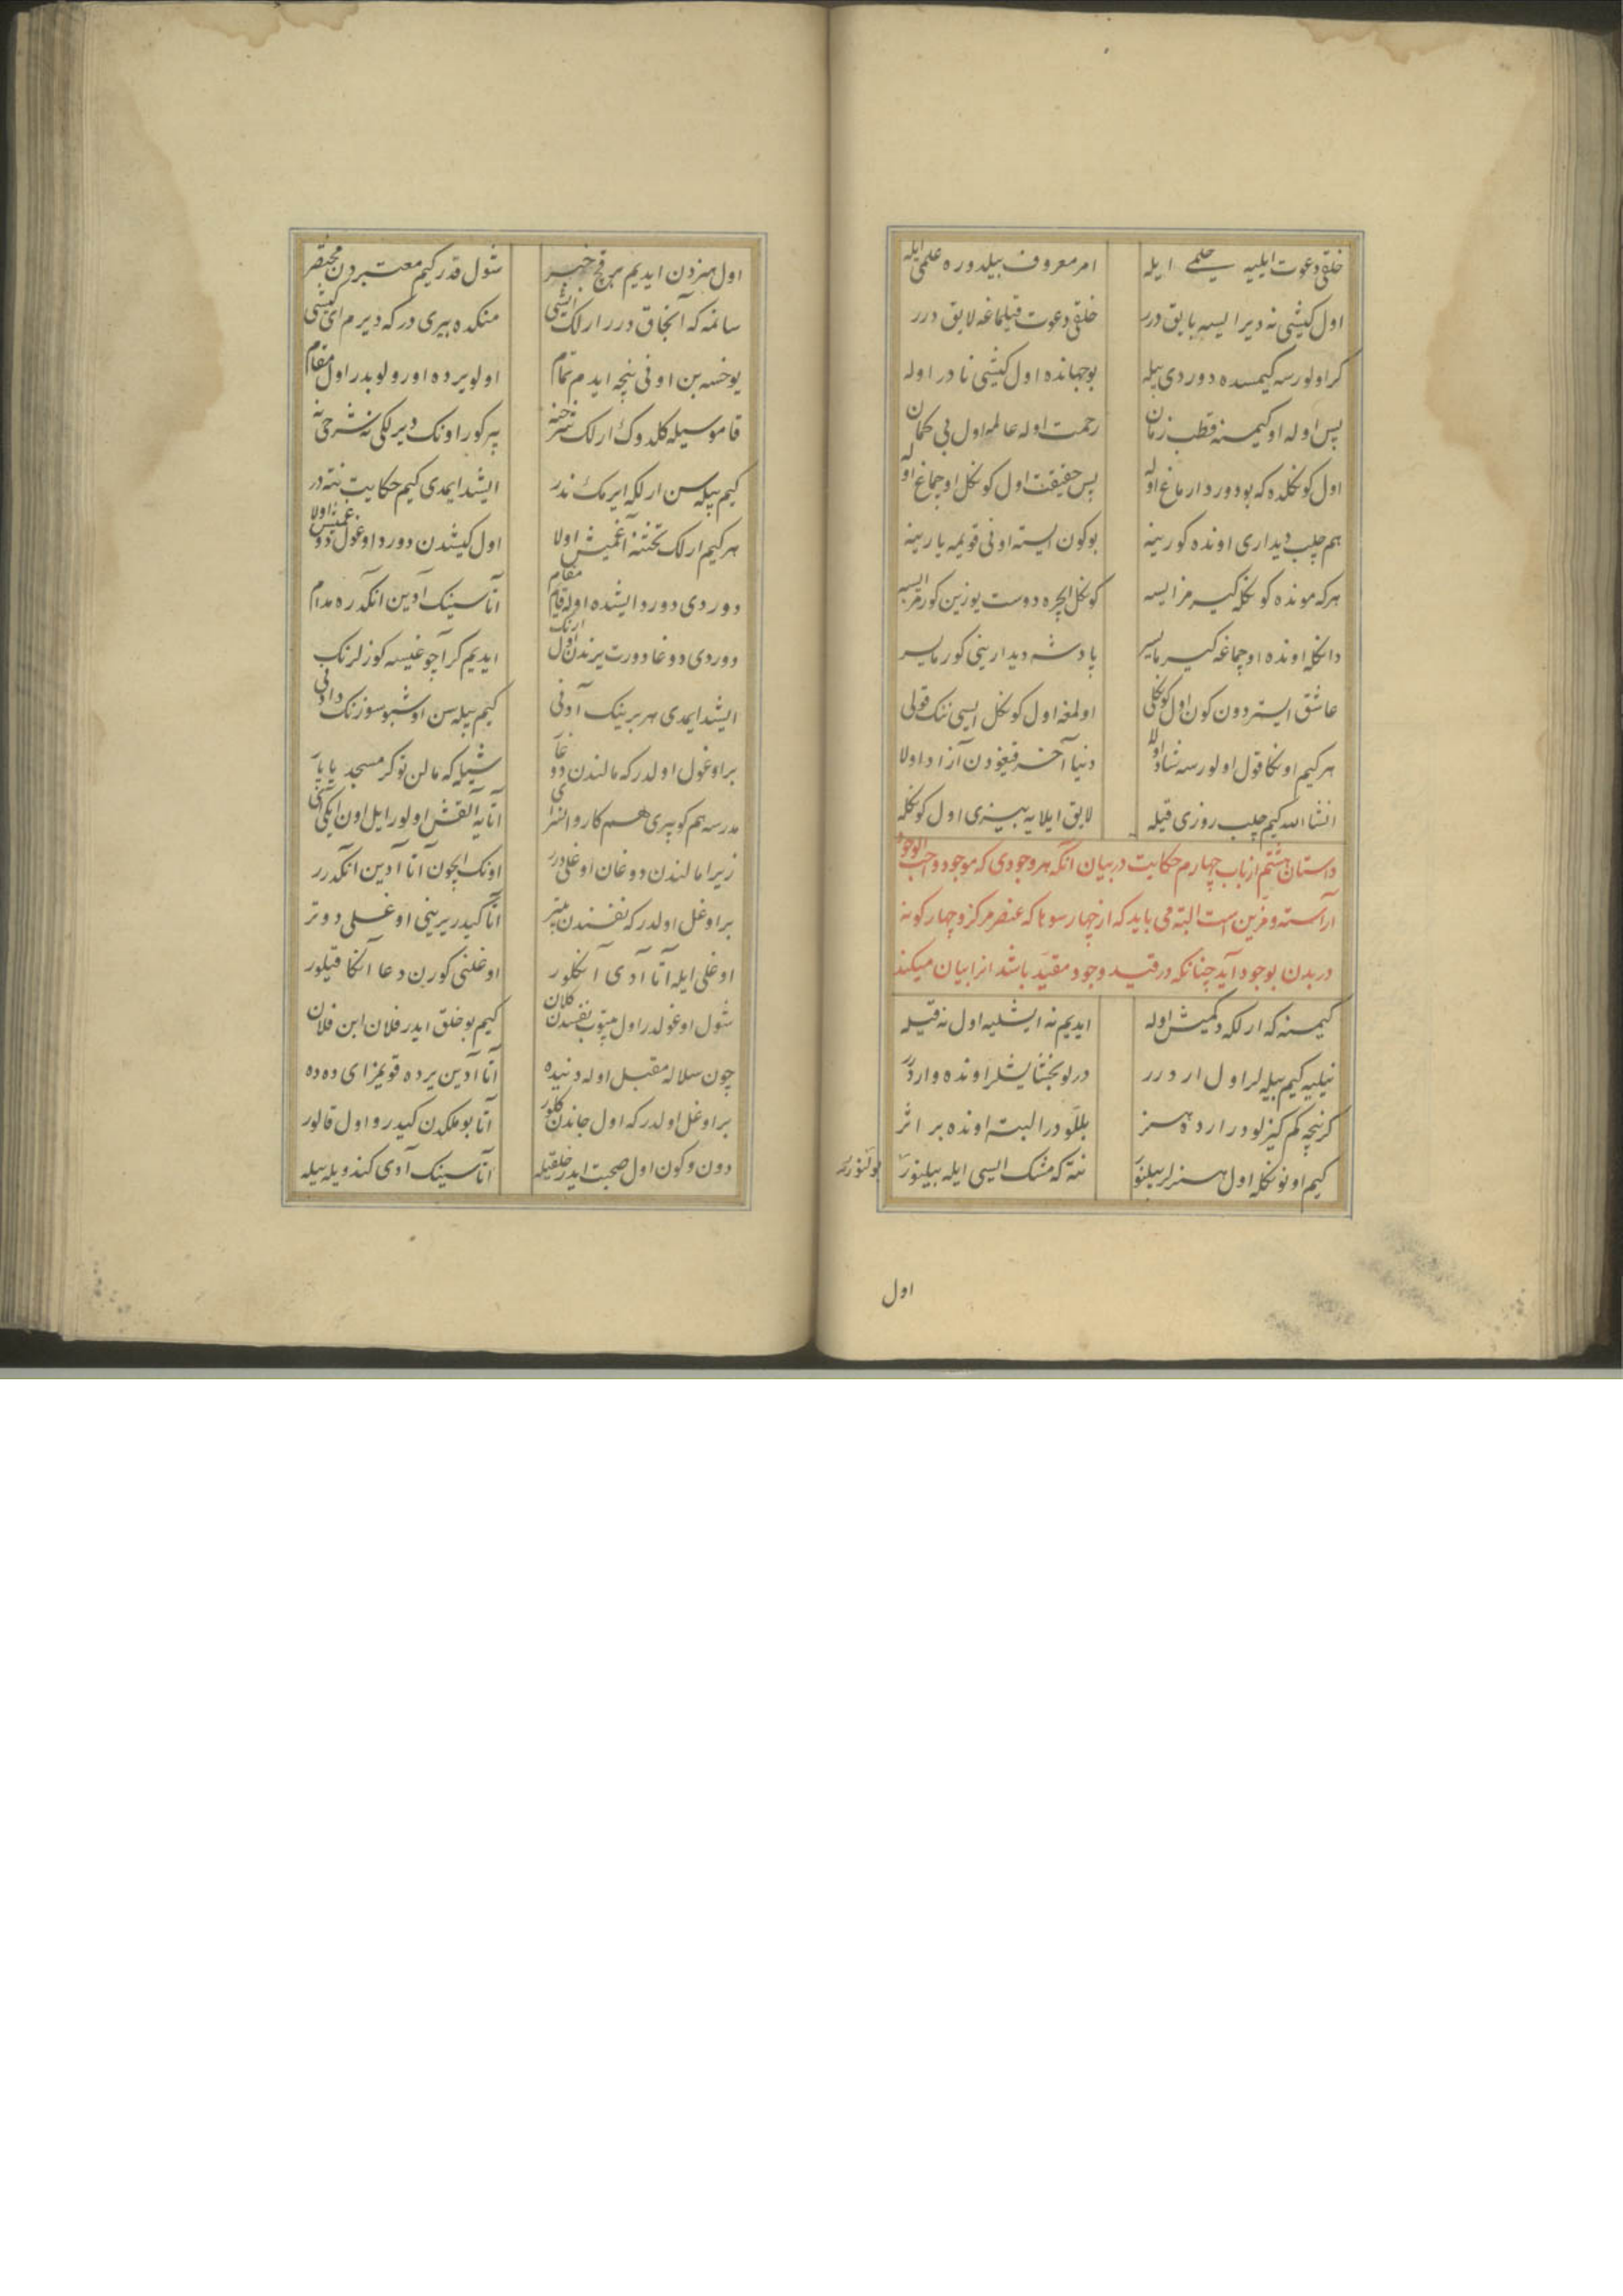 خلقی دعوت ایلیه حلمی ایله امر معروف بیلدوره علمی ایله
اول کیشی نه دیر ایسه بایق درر خلقی دعوت قیلماغه لایق درر
کر اولورسه کیمسده دوردی بیله بو جهانده اول کیشی نادر اوله
پس اوله او کیمسنه قطب زمان رحمت اوله عالمه اول بی کمان
اول کوکلده که بو دورد ارماغ اوله پس حقیقت اول کوکل اوچماغ اوله
هم چلب دیداری اونده کورینه بو کون ایسته اونی قویمه یارینه
هر که مونده کوکله کیرمز ایسه کوکل ایچره دوست یوزین کورمز ایسه
دانکله اونده اوچماغه کیرمایسر پادشه دیدارینی کورمایسر
عاشق ایستر دون کون اول کوکلی اولمغه اول کوکل ایسی ننک قولی
هر کیم اونکا قول اولورسه شاد اولا دنیا آخر قیغودن آزاد اولا
انشاالله کیم چلب روزی قیله لایق ایلایه بیزی اول کوکله
داستان هشتم از باب چهارم حکایت در بیان آنکه هر وجودی که موجود واجب الوجود
آراسته و مزین است البته می باید که از چهار سو ها که عنصر مرکز و چهار کونه
در بدن بوجود آید چنانکه در قید وجود مقید باشد انرا بیان میکند
کیمسنه که ارلکه دکمیش اوله ایدیم نه ایشلیه اول نه قیله
نیلیه کیم بیله لر اول ار درر درلو بخشایشلر اونده وار درر
کر نیچه کم کیزلودر ارده هنر بللو در البته اونده بر اثر
کیم اونونکله اول هنرلر بیلنور نته که مشک ایسی ایله بیلینور
بولنور
اول
اول هنردن ایدیم بر قچ خبر شول قدر کیم معتبردن مختصر
سانمه که آنجاق درر ارلک ایشی منکده بیری در که دیرم ای کیشی
یوخسه بن اونی نیچه ایدم تمام اولو یرده اورولوبدر اول مقام
قاموسیله کلدوک ارلک شرحنه بیر کور اونک دیرلکی نه شرحی نه
کیم بیله سن ارلکه ایرمک ندر ایشد ایمدی کیم حکایت نته در
هر کیم ارلک تختنه آغمیش اولا اول کیشدن دورد اوغول دوغمیش اولا
دوردی دورد ایشده اوله قایم مقام آتاسینک آدین انکدره مدام
دوردی دوغا دورت یرندن اول ارنک ایدیم کر آچوغیسه کوزلرنک
ایشد ایمدی هر برینک آدنی کیم بیله سن اوشبو سوزنک دادنی
بر اوغول اولدر که مالندن دوغا شیله که مالن توکر مسجد یاپار
مدرسه هم کوپری هم کاروانسرای آتایه آلقش اولور ایل اون ایکی آی
زیرا مالندن دوغان اوغلی درر اونک ایچون آتا آدین انکدرر
بر اوغل اولدر که نفسندن بیتر آتا کیدر یرینی اوغلی دوتر
اوغلی ایله آتا آدی آنکلور اوغلنی کورن دعا آنکا قیلور
شول اوغولدر اول بیتوب نفسدن کلان کیم بو خلق ایدر فلان ابن فلان
چون سلاله مقبل اوله دنیده آتا آدین یرده قویمز ای دده
بر اوغل اولدر که اول جاندن کلور آتا بو ملکدن کیدر و اول قالور
دون و کون اول صحبت ایدر خلقیله آتاسینک آدی کندویله بیله